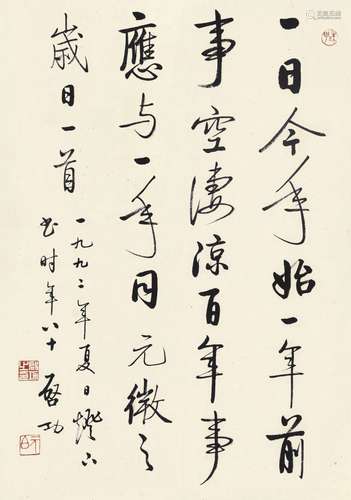 一日今年始一年前
事空淒凉百年事
應与一年同元微之
歲日一首
一九九二年夏日燈下
书时年八十 启功